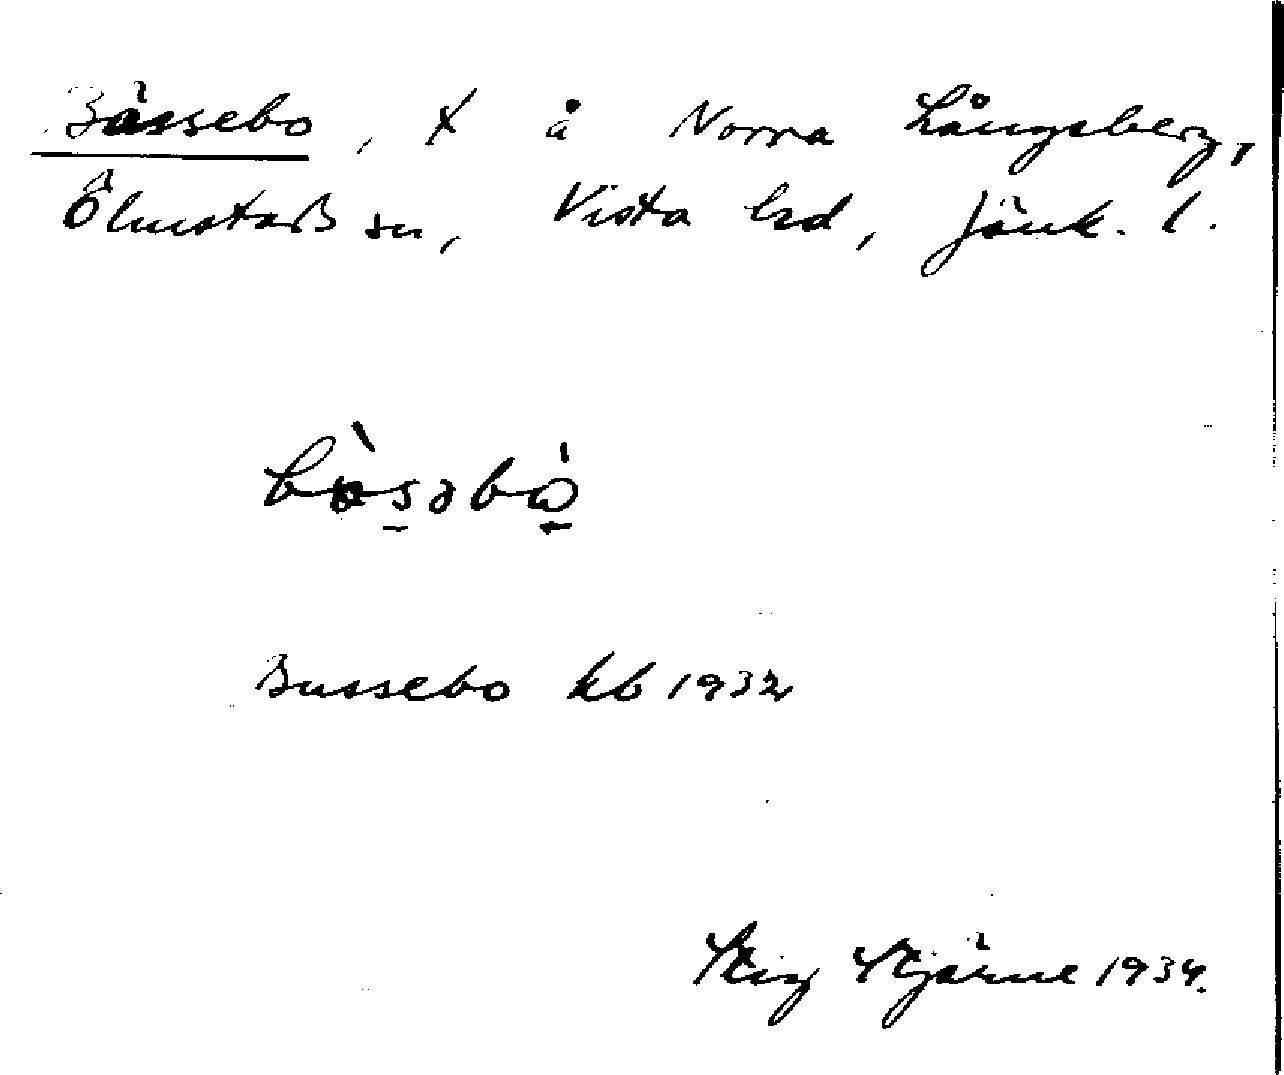 Bässebo, x å Norra Långsberg,
Ölmstads sn, Vista hd, Jönk. l.
Bussebo kb 1932
Stig Stjärne 1934.